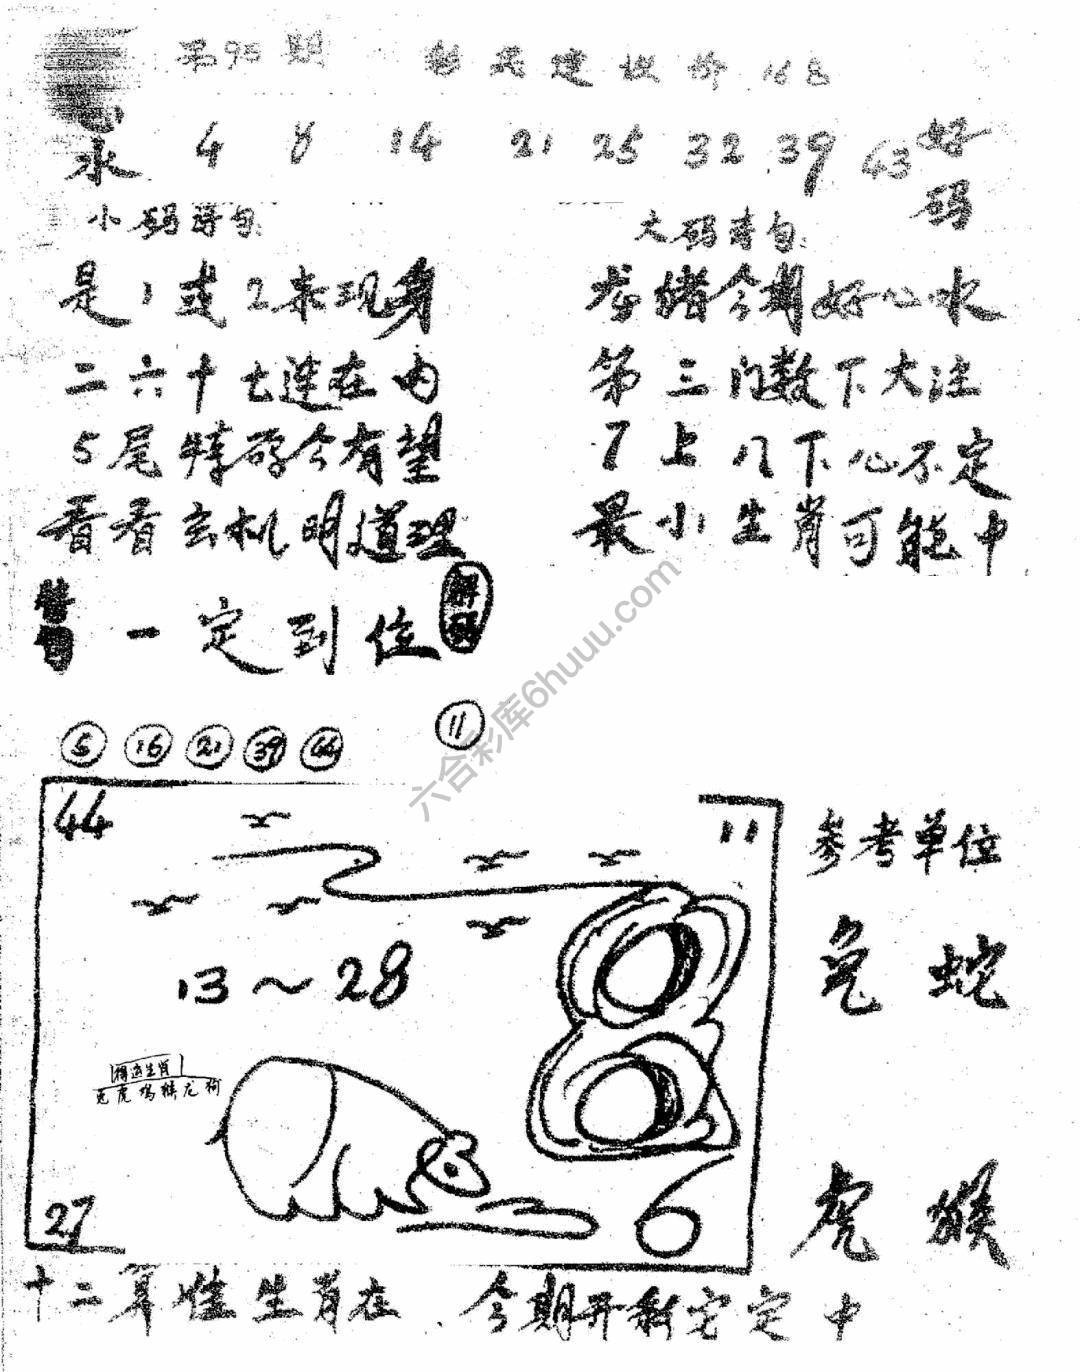 第95期 彩民建议价168
心水 4 8 14 21 25 32 39 43 好码
小码诗句:
大码诗句:
是1或2来现身
龙猪今期好心水
二六十七连在内
第三门数下大注
5尾特码今有望
7上八下心不定
看看玄机明道理
最小生肖可能中
一定到位
解码
5 16 21 39 44
11
44
11
参考单位
13～28
兔 蛇
得道生肖
兔虎鸡猴龙狗
27
6
虎 猴
十二算准生肖在 今期开彩它定中
六合彩库6huuu.com